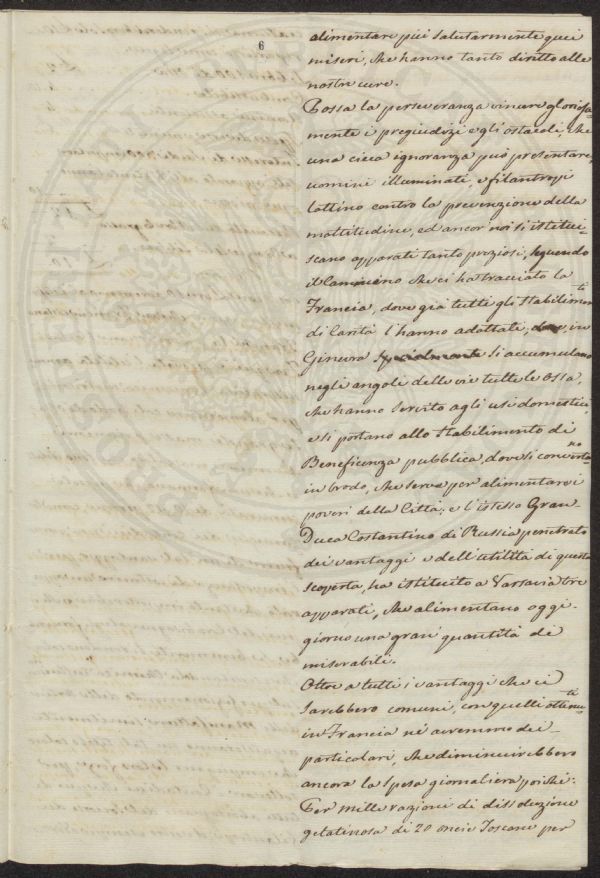 6
alimentare più salutarmente quei
miseri, che hanno tanto diritto alle
nostre cure.
Possa la perseveranza vincere gloriosa
mente i pregiudizi e gli ostacoli, che
una cieca ignoranza può presentare,
uomini illuminati, e filantropi
lottino contro la prevenzione della
moltitudine, ed ancor noi si istitui-
scano apparati tanto preziosi, seguendo
il cammino che ci ha tracciato la
Francia, dove già tutti gli Stabilimenti
di Carità l'hanno adottate, in
Ginevra specialmente si accumulano
negli angoli delle vie tutte le ossa,
che hanno servito agli usi domestici,
e si portano allo Stabilimento di
Beneficenza pubblica, dove si convertono
in brodo, che serve per alimentare i
poveri della Città; e l'istesso Gran-
Duca Costantino di Russia penetrato
dei vantaggi e dell'utilità di questa
scoperta, ha istituito a Varsavia tre
apparati, che alimentano oggi-
giorno una gran quantità di
miserabili.
Oltre a tutti i vantaggi che ci
sarebbero comuni, con quelli ottenuti
in Francia ne avremmo dei
particolari, che diminuirebbero
ancora la spesa giornaliera poichè:
Per mille razioni di dissoluzione
gelatinosa di 20 oncie Toscane per